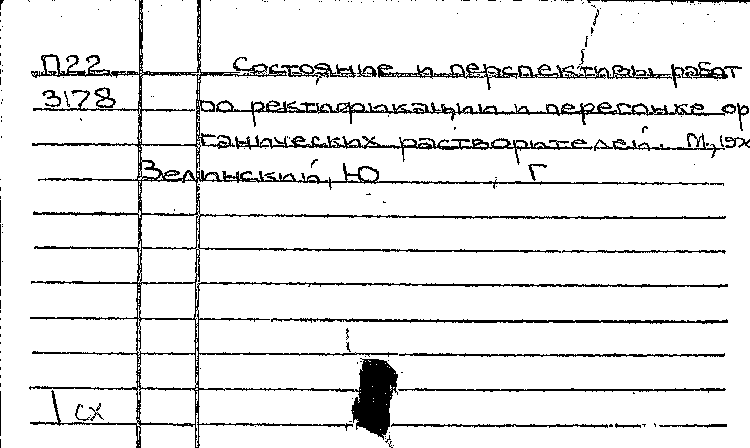 П22 Состояние и перспективы работ
3178 по ректификации и перегонке ор
ганических растворителей. М.,
Зелинский, Ю Г
1 сх